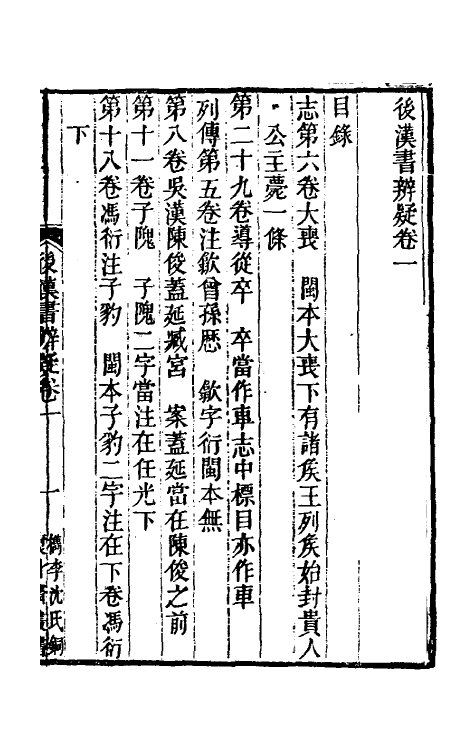 後漢書辨疑卷一
目錄
志第六卷大喪　閩本大喪下有諸矦王列矦始封貴人
公主薨一條
第二十九卷導從卒　卒當作車志中標目亦作車
列傳第五卷注歙曾孫歷　歙字衍閩本無
第八卷吳漢陳俊蓋延臧宮　案蓋延當在陳俊之前
第十一卷子隗　子隗二字當注在任光下
第十八卷馮衍注子豹　閩本子豹二字注在下卷馮衍
下
後漢書辨疑卷一
一
檇李沈氏銅